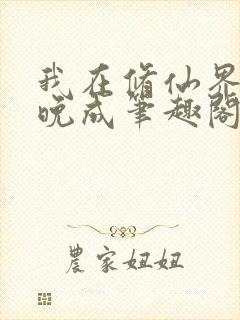 我在修仙界
晚成笔趣阁
農家妞妞